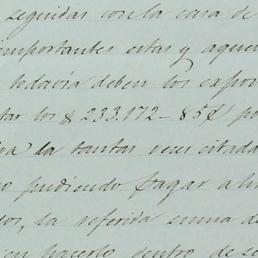 seguidas con la casa de
importantes estas y aquel
todavía deben los expor
tar los $ 233.172 - 85¢ po
la tantas veces citada
pudiendo pagar a la
la referida suma d
en hacerlo dentro de se